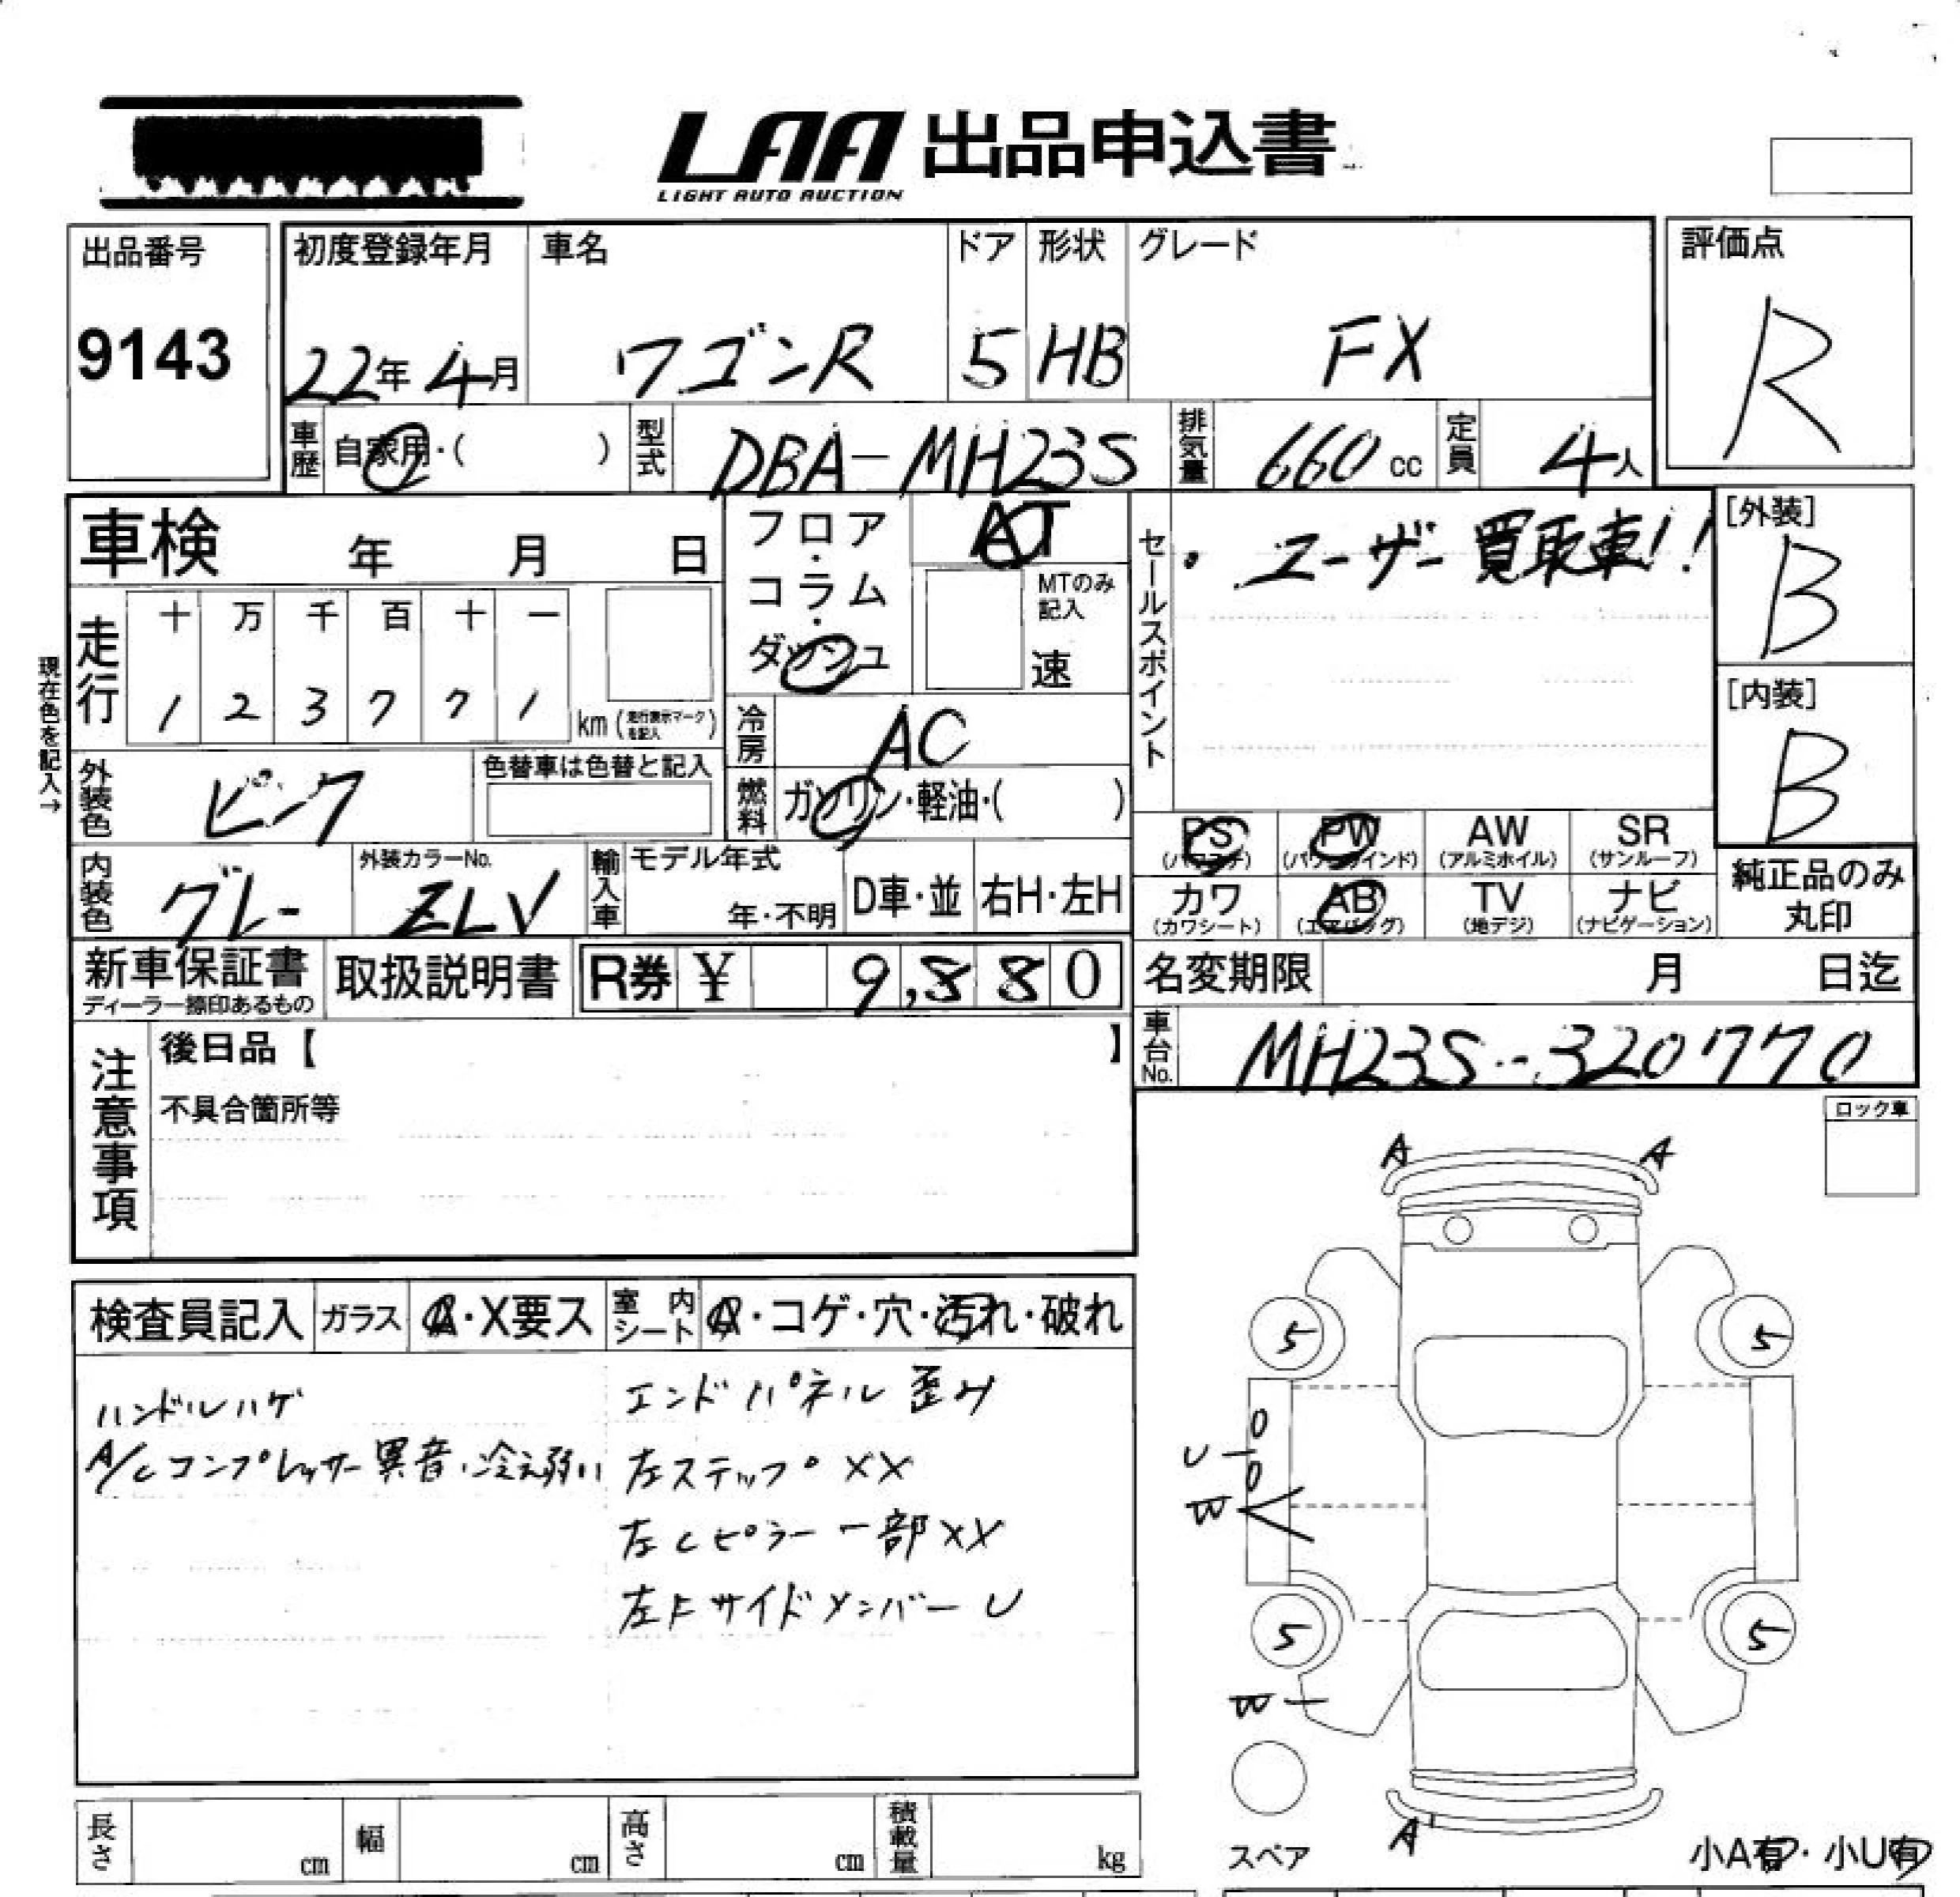 LAA 出品申込書
LIGHT AUTO AUCTION
出品番号
9143
初度登録年月
22年 4月
車名
ワゴンR
ドア
5
形状
HB
グレード
FX
評価点
R
車歴
自家用・( )
型式
DBA-MH23S
排気量
660 cc
定員
4人
車検 年 月 日
現在色を記入→
走行
十 万 千 百 十 一
1 2 3 7 7 1
km (走行表示マークを記入)
フロア・コラム・ダッシュ
AT
MTのみ記入
速
冷房
AC
燃料
ガソリン・軽油・( )
セールスポイント
・ユーザー買取車!!
[外装]
B
[内装]
B
外装色
ピンク
色替車は色替と記入
内装色
グレー
外装カラーNo.
ZLV
輸入車
モデル年式
年・不明
D車・並
右H・左H
PS
(パワステ)
PW
(パワーウインド)
AW
(アルミホイル)
SR
(サンルーフ)
カワ
(カワシート)
AB
(エアバッグ)
TV
(地デジ)
ナビ
(ナビゲーション)
純正品のみ
丸印
新車保証書
ディーラー捺印あるもの
取扱説明書
R券 ¥ 9,880
名変期限 月 日迄
車台No.
MH23S-320770
注意事項
後日品【 】
不具合箇所等
ロック車
検査員記入
ガラス
A・X要ス
室内シート
A・コゲ・穴・汚れ・破れ
ハンドルハゲ
A/Cコンプレッサー異音、冷え弱い
エンドパネル歪み
左ステップ XX
左Cピラー一部XX
左Fサイドメンバー U
A A
5 5
U
W
5 5
W
A
スペア
小A有・小U有
長さ cm
幅 cm
高さ cm
積載量 kg